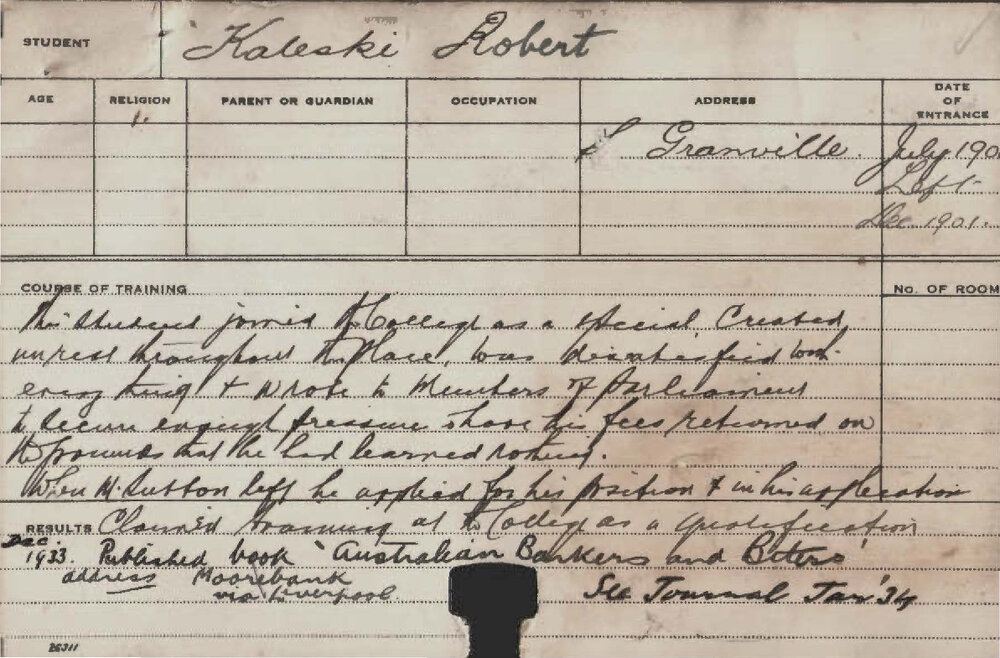 STUDENT Kaleski Robert
AGE RELIGION PARENT OR GUARDIAN OCCUPATION ADDRESS DATE OF ENTRANCE
1. Granville. July 190
Left
Dec. 1901.
COURSE OF TRAINING No. OF ROOM
This student joined the College as a special. Created
unrest throughout the place, was dissatisfied with
every thing & wrote to Members of Parliament
to secure enough pressure to have his fees returned on
the grounds that he had learned nothing.
When Mr. Sutton left he applied for his position & in his application
RESULTS Claimed training at the College as a qualification
Dec.
1933. Published book 'Australian Barkers and Biters'
address Moorebank
via Liverpool. See Journal Jan '34
26311